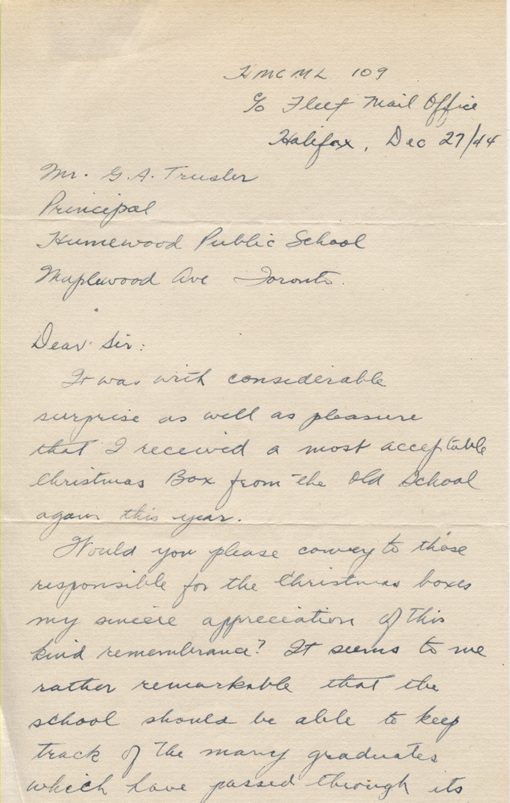 HMCML 109
c/o Fleet Mail Office
Halifax, Dec 27/44
Mr. G.A. Trusler
Principal
Humewood Public School
Maplewood Ave Toronto.
Dear Sir:
It was with considerable
surprise as well as pleasure
that I received a most acceptable
Christmas Box from the Old School
again this year.
Would you please convey to those
responsible for the Christmas boxes
my sincere appreciation of this
kind remembrance? It seems to me
rather remarkable that the
school should be able to keep
track of the many graduates
which have passed through its